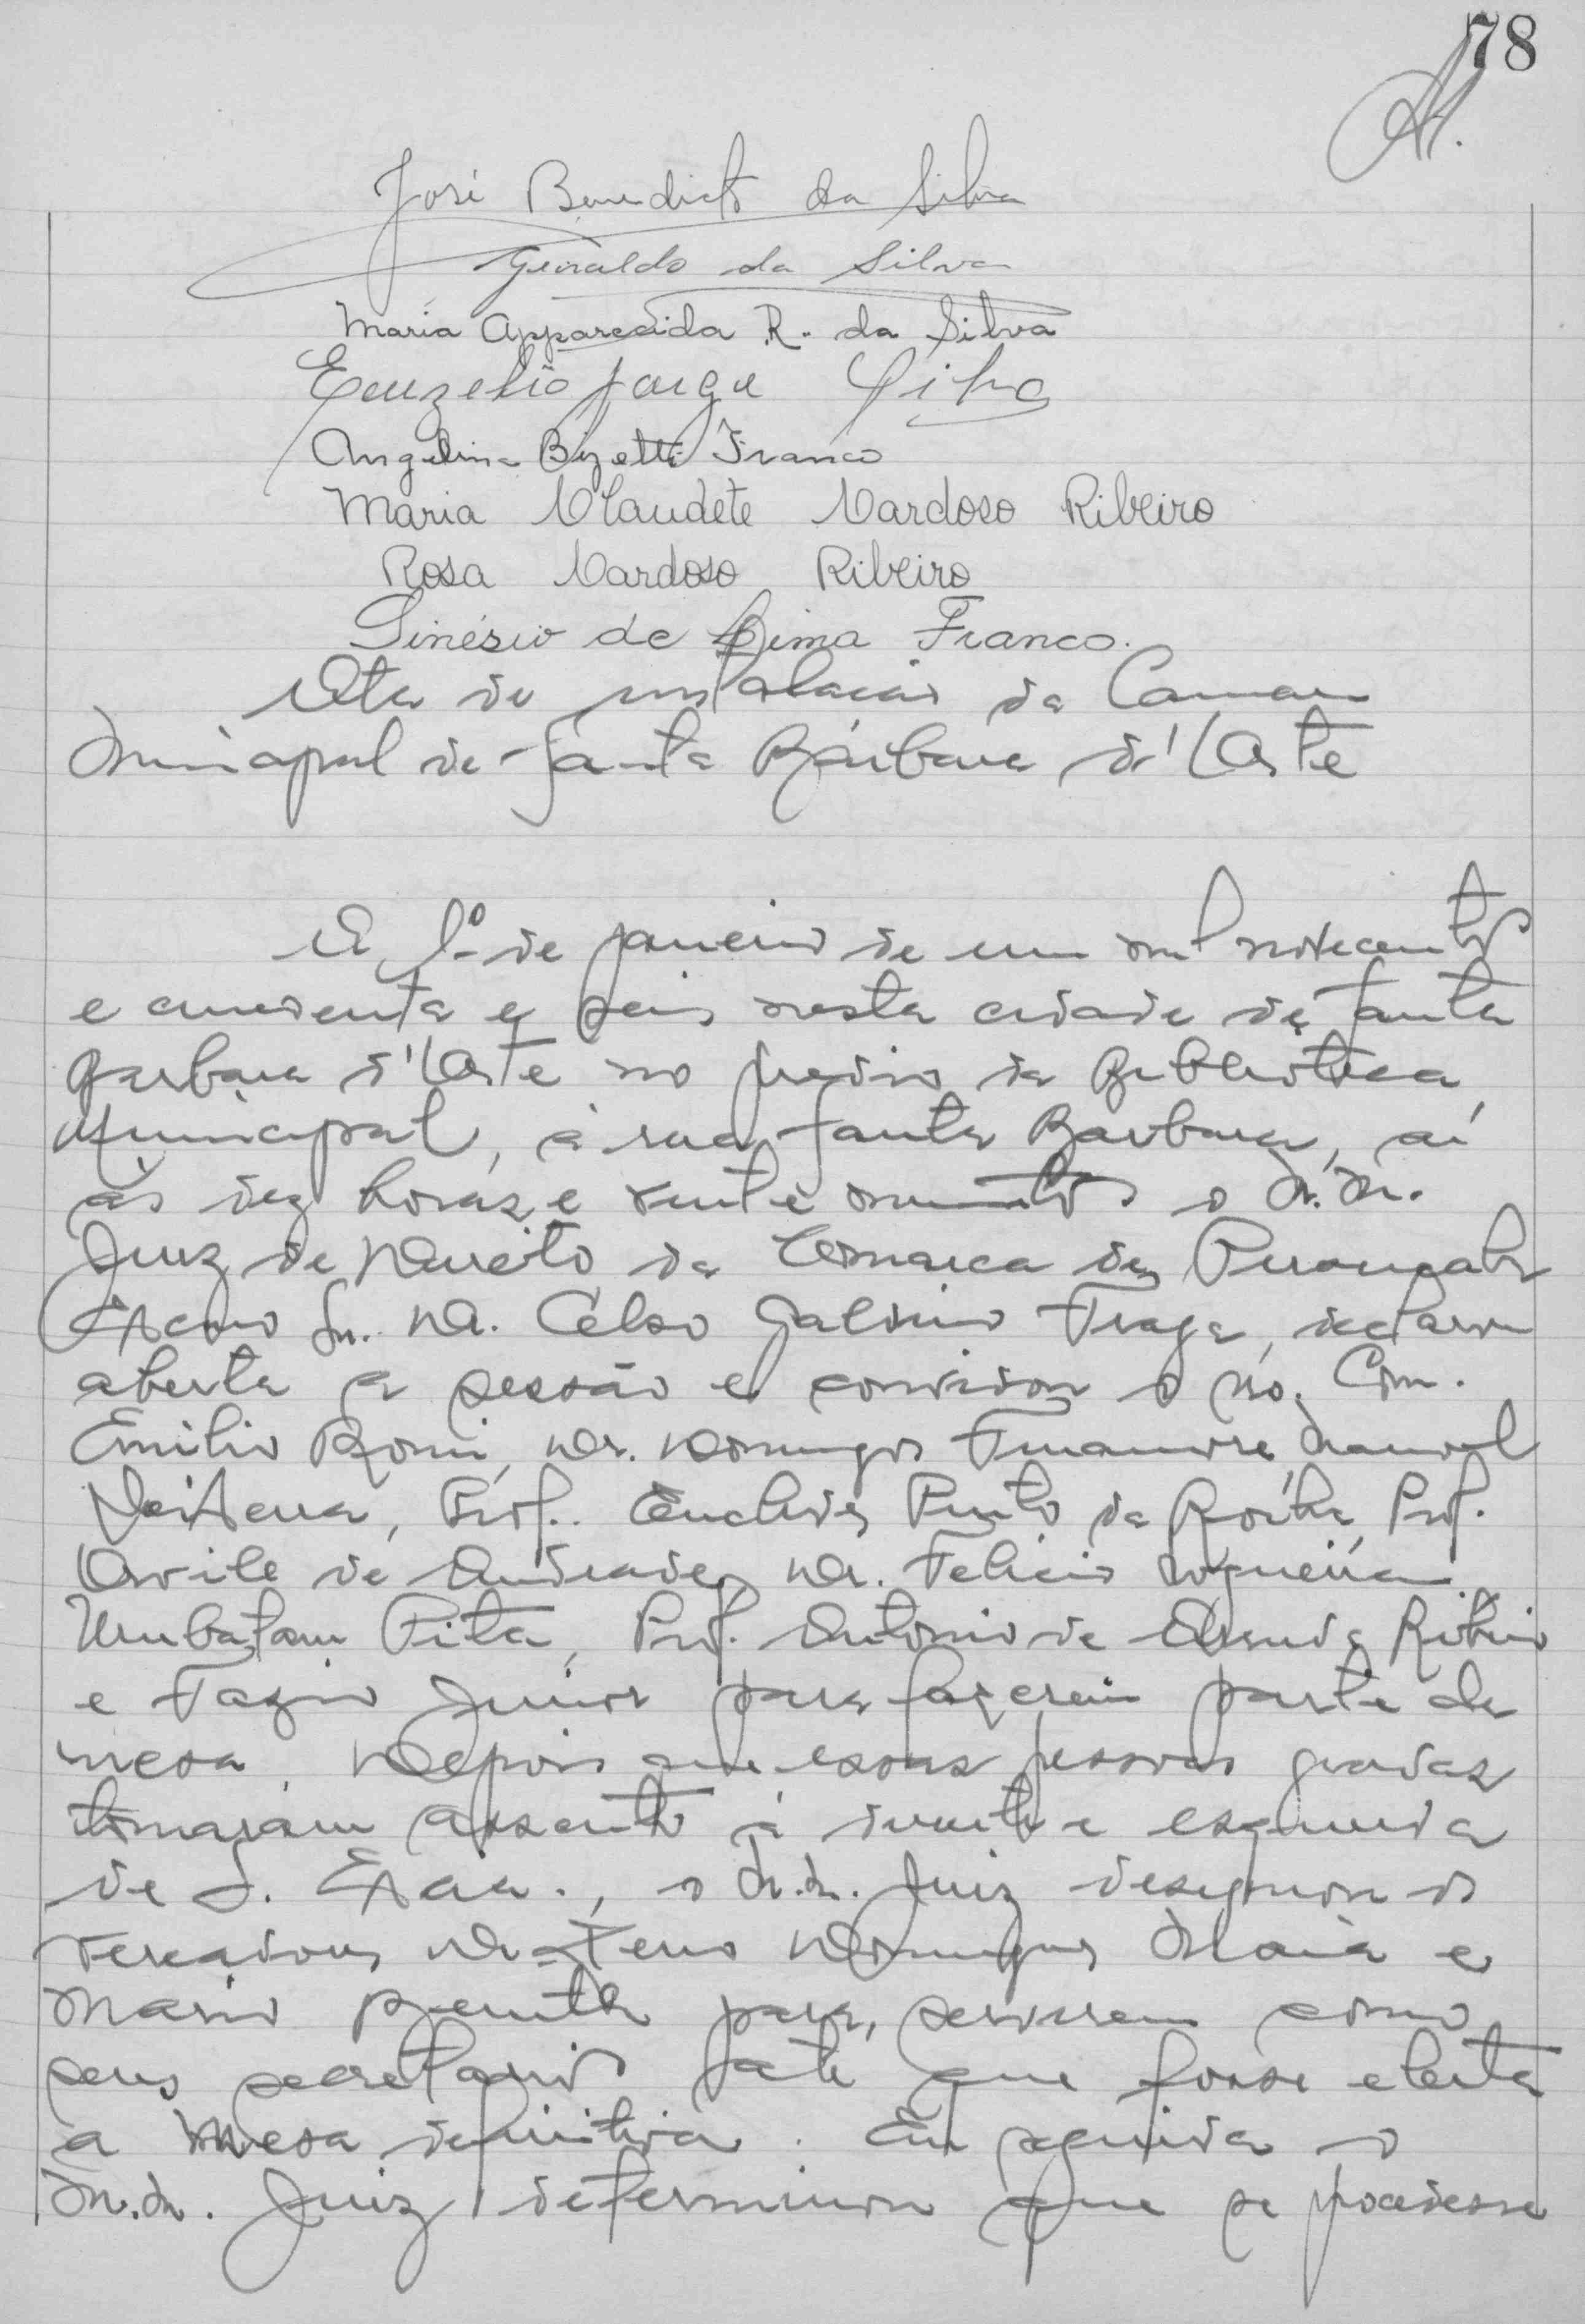 78
José Benedicto da Silva
Geraldo da Silva
Maria Apparecida R. da Silva
Euzebio Jorge Silva
Angelina Bizetti Franco
Maria Claudete Cardoso Ribeiro
Rosa Cardoso Ribeiro
Sinésio de Lima Franco.
Ata de instalação da Camara
Municipal de Santa Bárbara d'Oeste
A 1º de janeiro de um mil novecentos
e cincoenta e seis nesta cidade de Santa
Barbara d'Oeste no predio da Biblioteca
Municipal, à rua Santa Barbara, aí
às dez horas e vinte minutos o M.M.
Juiz de Direito da Comarca de Piracicaba
Exmo Sr. Dr. Celso Galdino Fraga, declarou
aberta a sessão e convidou o Com.
Emilio Romi, Dr. Domingos Finamore, Manoel
Teixeira, Prof. Euclides Pinto da Rocha, Prof.
de Andrade, Dr. Felicio Nogueira
Urubatam Pita, Prof. Antonio de Arruda Ribeiro
e Fazio Junior para fazerem parte da
mesa. Depois que essas pessoas gradas
tomaram assento à direita e esquerda
de S. Excia., o M.M. Juiz designou os
vereadores Domingues Maia e
Mario para, servirem como
seus secretarios até que fosse eleita
a Mesa definitiva. Em seguida o
M.M. Juiz determinou que se procedesse